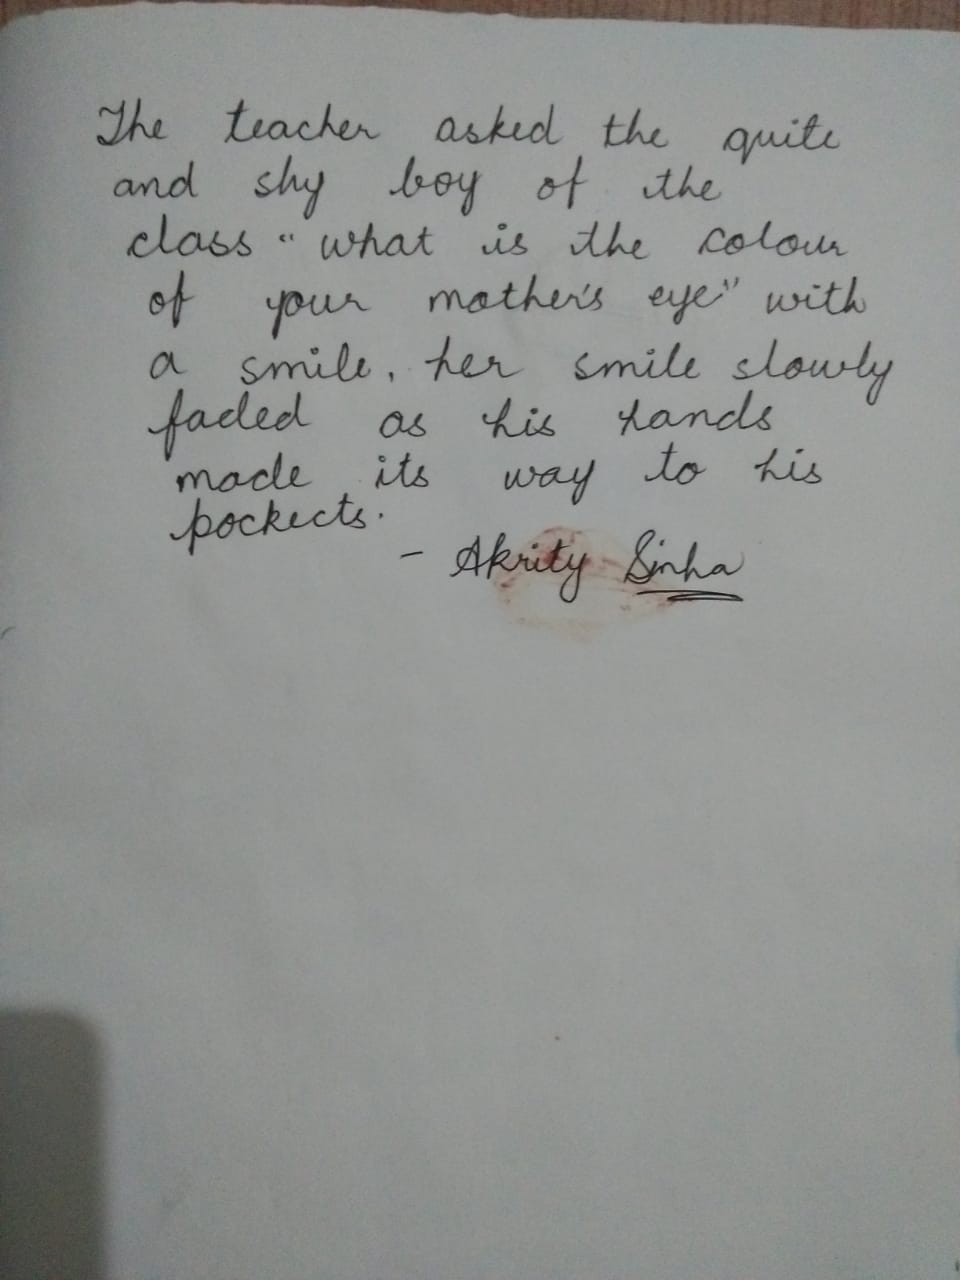 The teacher asked the quite
and shy boy of the
class " what is the colour
of your mother's eye" with
a smile, her smile slowly
faded as his hands
made its way to his
pockects.
- Akrity Sinha